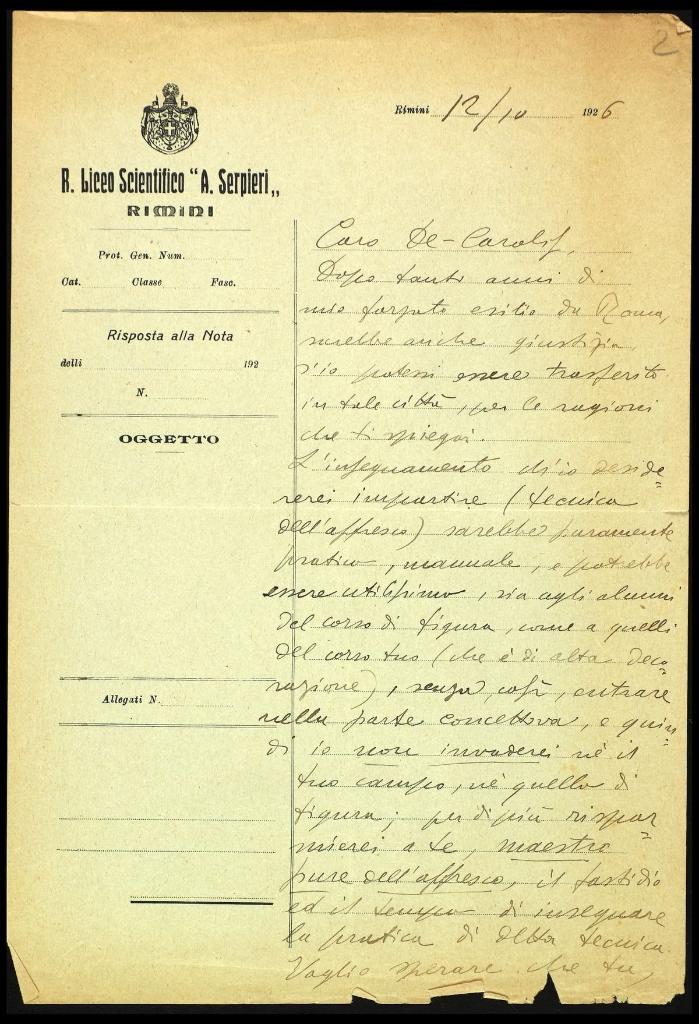 2
Rimini 12/10 1926
R. Liceo Scientifico "A. Serpieri„
RIMINI
Prot. Gen. Num.
Cat. Classe Fasc.
Risposta alla Nota
delli 192
N.
OGGETTO
Allegati N.
Caro De-Carolis,
Dopo tanti anni di
mio forzato esilio da Roma,
sarebbe anche giustizia
s'io potessi essere trasferito
in tale città, per le ragioni
che ti spiegai.
L'insegnamento ch'io deside=
rerei impartire (tecnica
dell'affresco) sarebbe puramente
pratico, manuale, e potrebbe
essere utilissimo, sia agli alunni
del corso di figura, come a quelli
del corso tuo (che è di alta deco=
razione), senza, così, entrare
nella parte concettova, e quin=
di io non invaderei nè il
tuo campo, nè quello di
figura; per di più rispar=
mierei a te, maestro
pure dell'affresco, il fastidio
ed il tempo di insegnare
la pratica di detta tecnica.
Voglio sperare che tu,